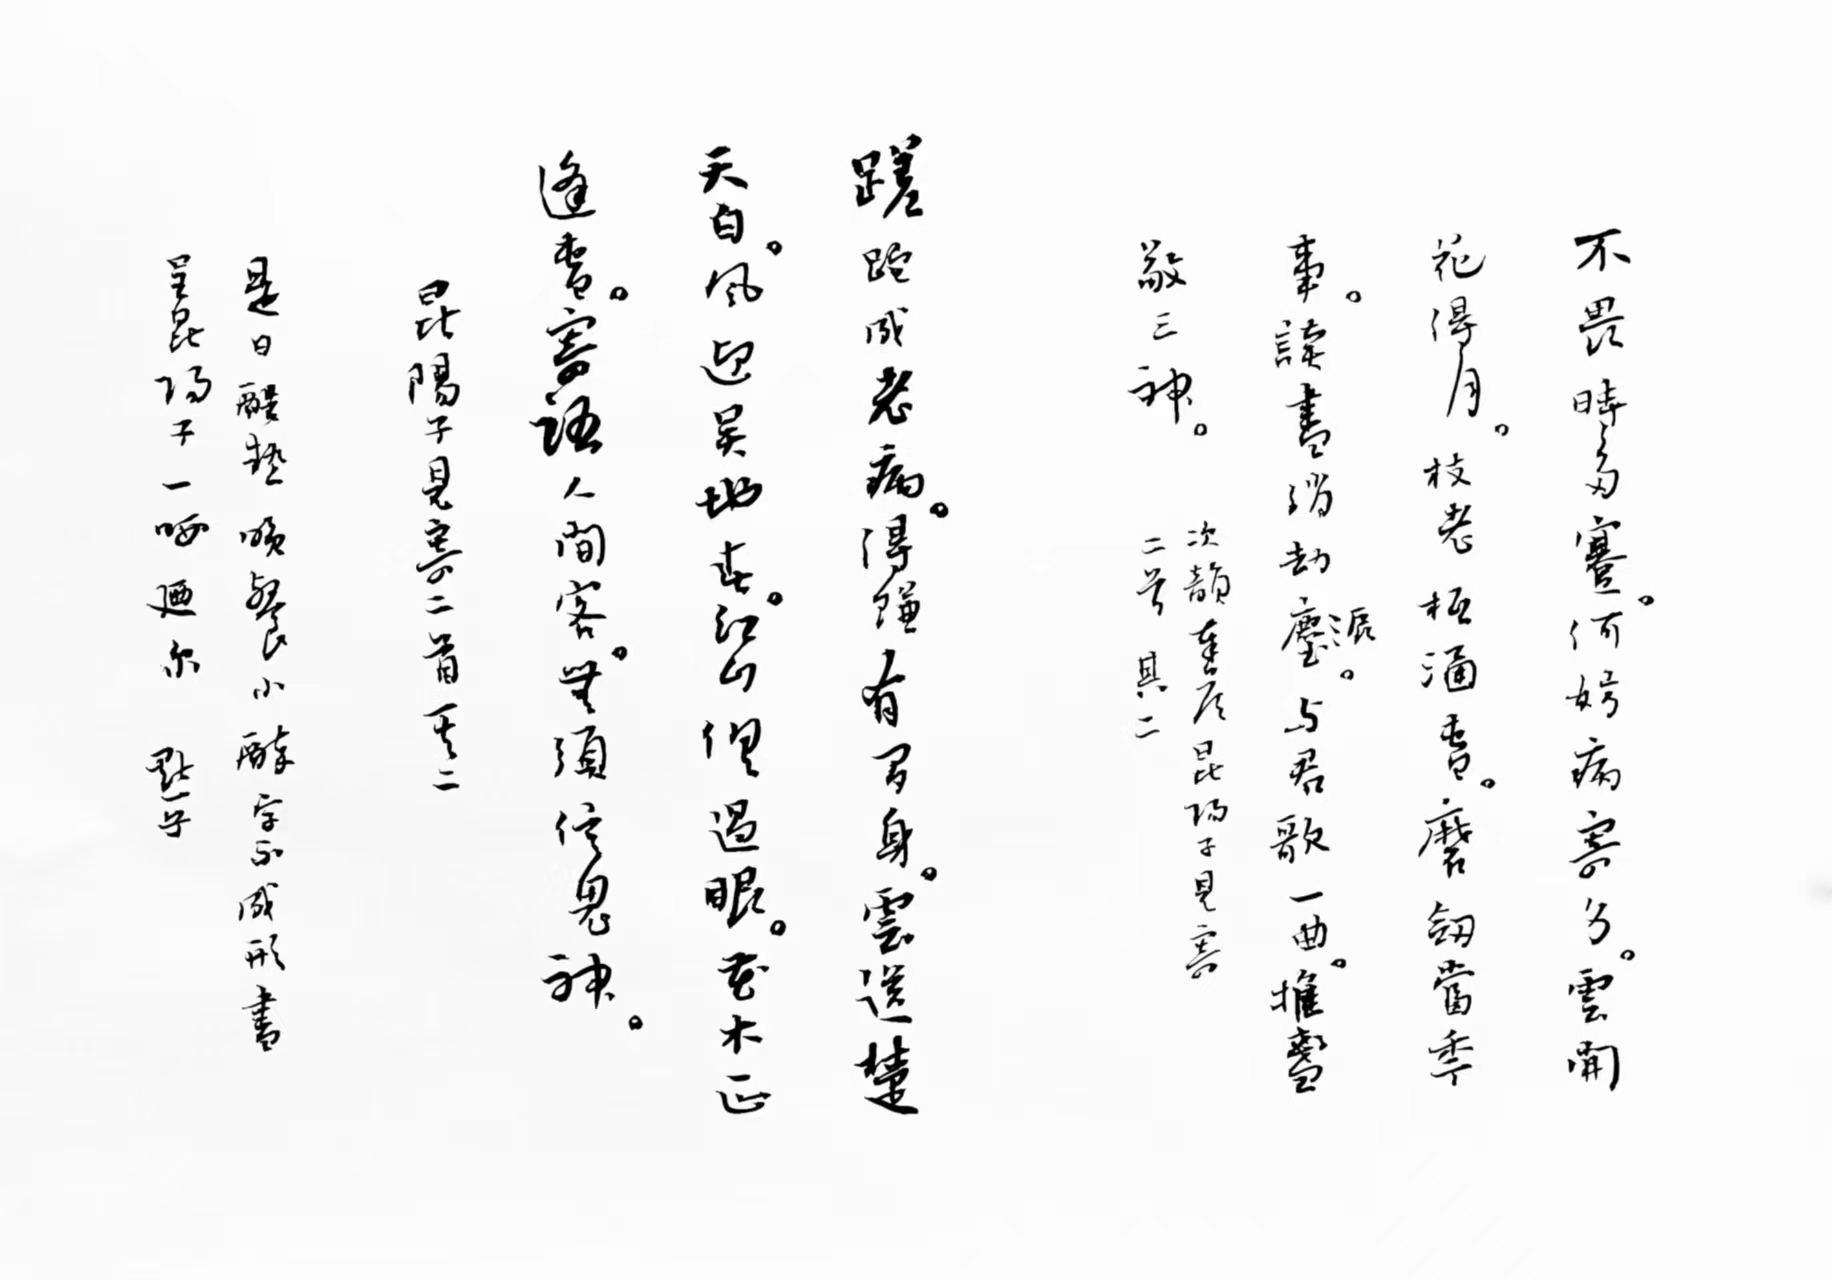 不畏時多蹇。何妨病寄身。雲開
花得月。枝老極涌春。磨劍當年
事。讀書消劫塵。与君歌一曲。推盞
敬三神。
次韻奉答昆陽子見寄
二首 其二
蹉跎成老病。得賺有閒身。雲送楚
天白。風迎吴地春。江山俱過眼。花木正
逢春。寄語人間客。無須信鬼神。
昆陽子見寄二首 其二
是日酷熱 晚餐小醉字不成形書
呈昆陽子一哂廼尔